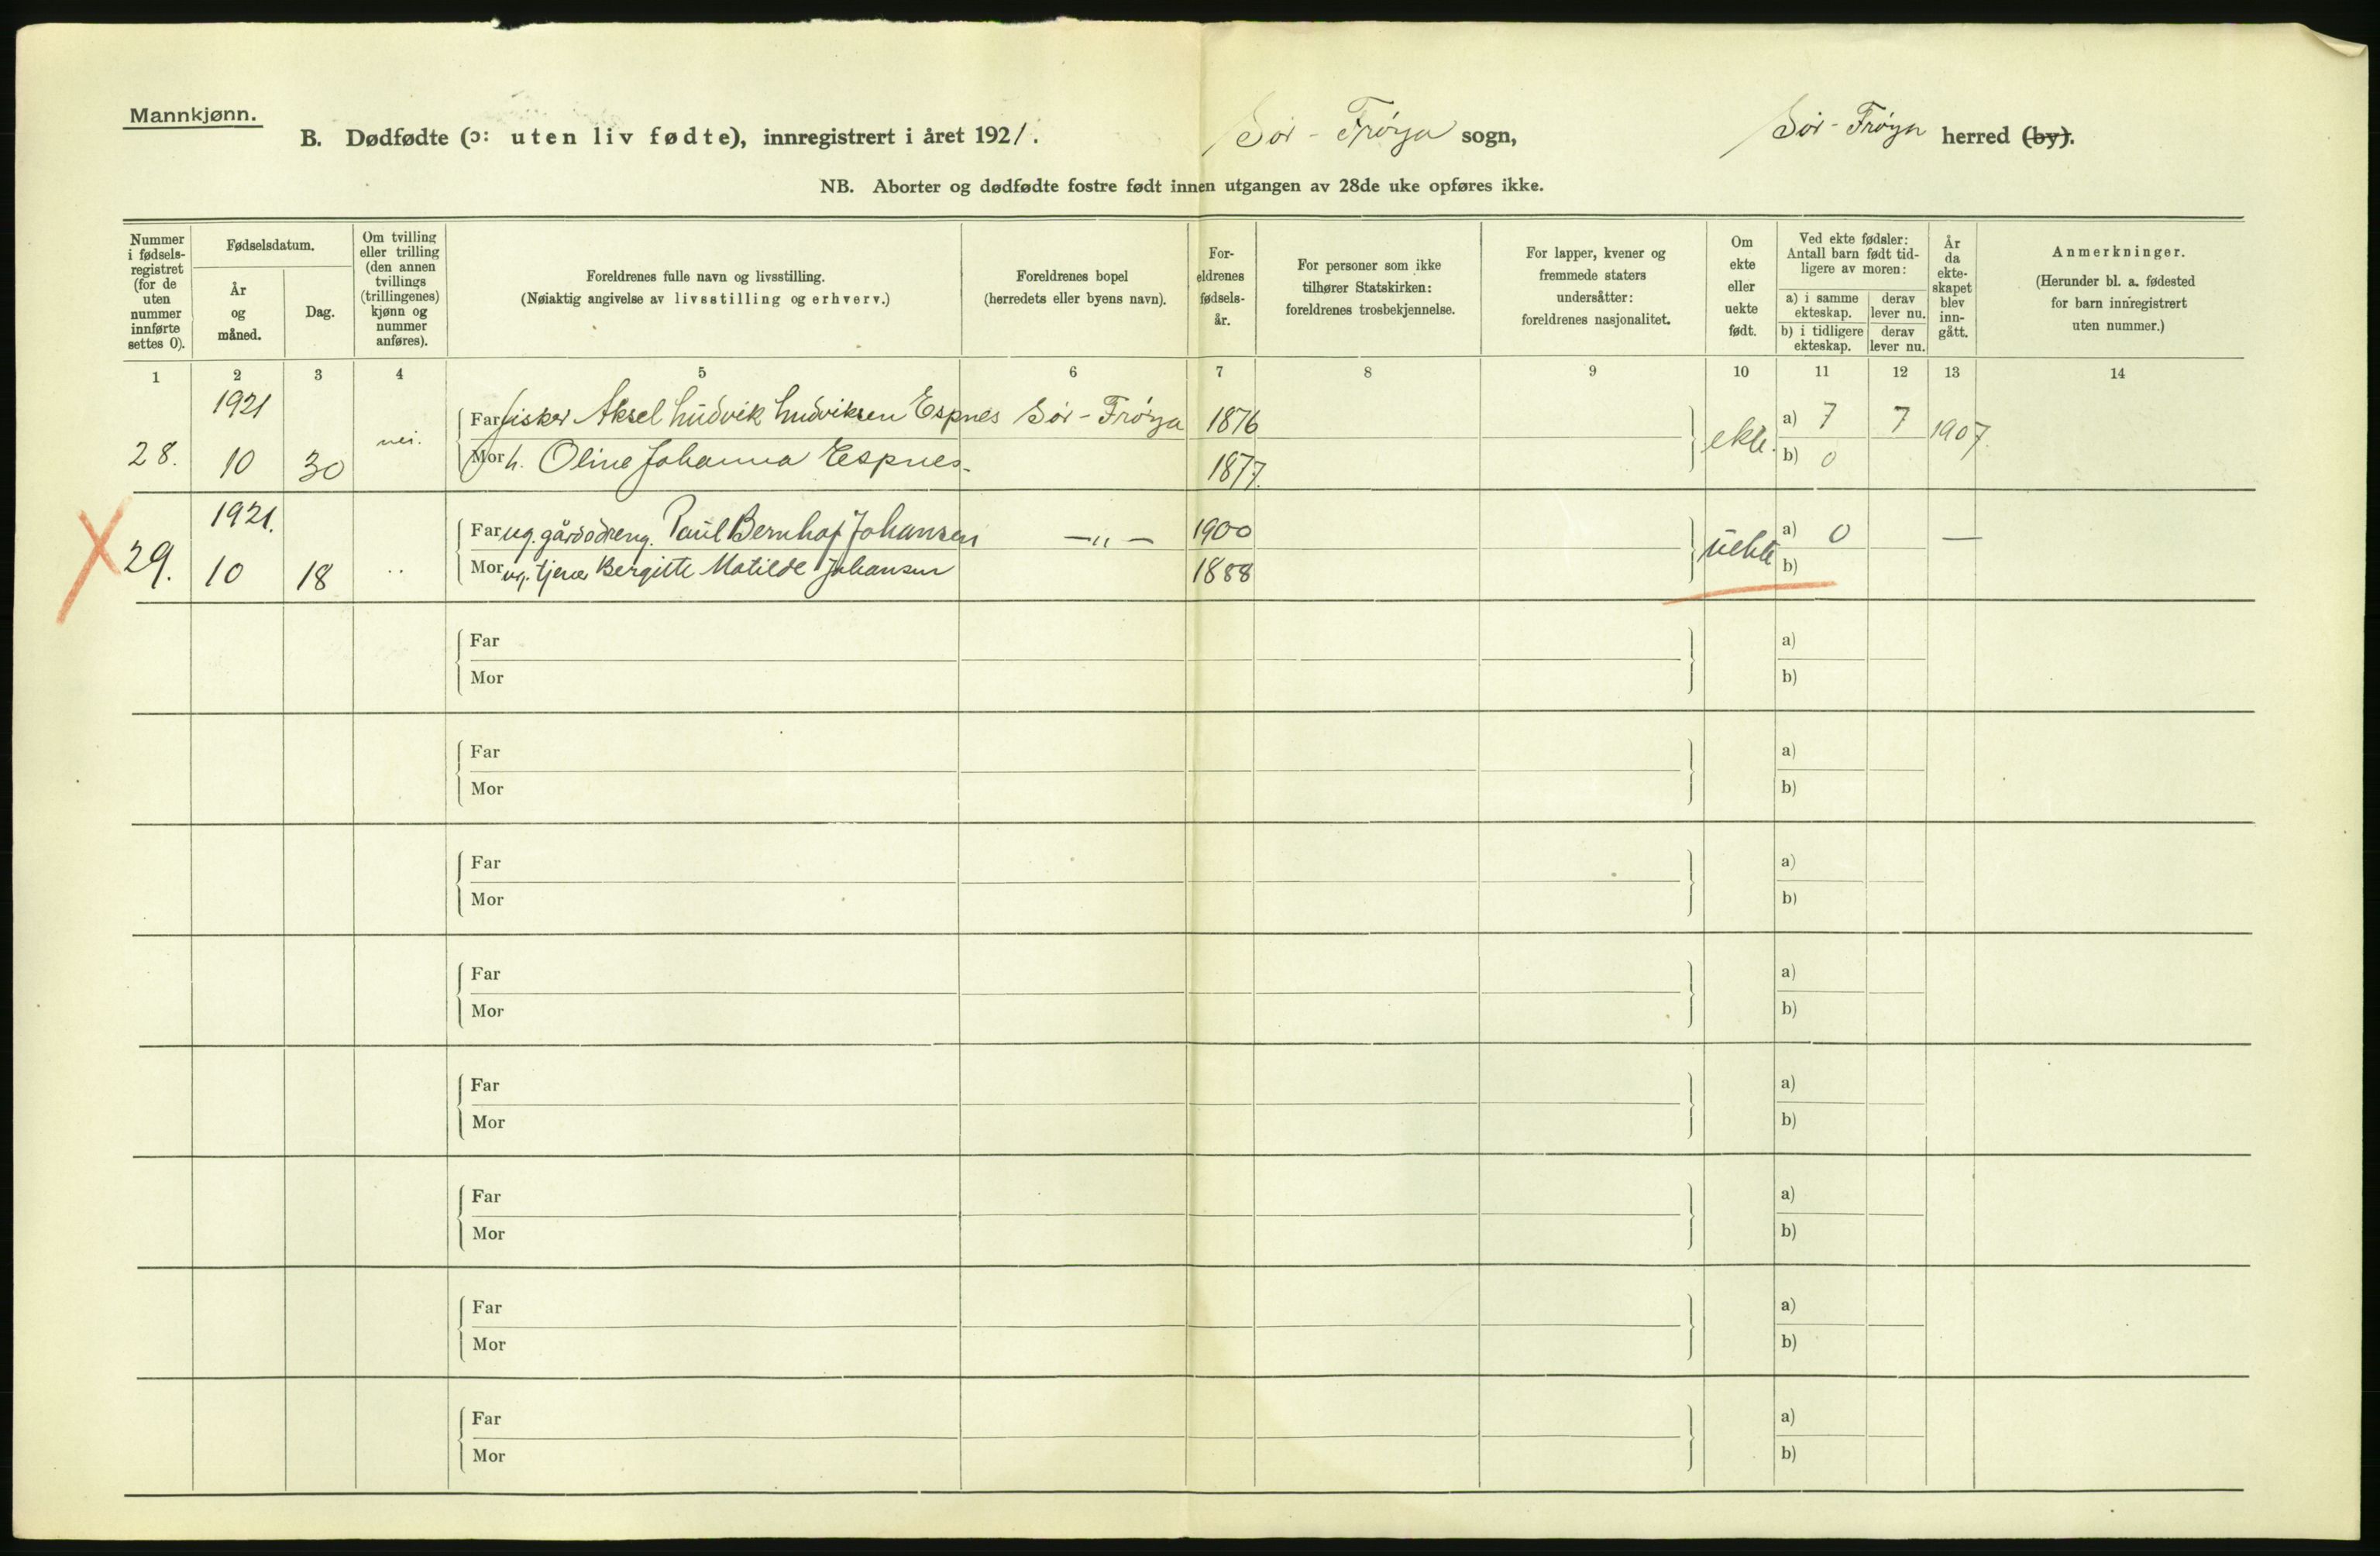 Mannkjønn.
B. Dødfødte (ɔ: uten liv fødte), innregistrert i året 1921. Sör-Fröya sogn, Sör-Fröya herred (by).
NB. Aborter og dødfødte fostre født innen utgangen av 28de uke opføres ikke.
Nummer
i fødsels-
registret
(for de
uten
nummer
innførte
settes 0).
Fødselsdatum.
År
og
måned.
Dag.
Om tvilling
eller trilling
(den annen
tvillings
(trillingenes)
kjønn og
nummer
anføres).
Foreldrenes fulle navn og livsstilling.
(Nøiaktig angivelse av livsstilling og erhverv.)
Foreldrenes bopel
(herredets eller byens navn).
For-
eldrenes
fødsels-
år.
For personer som ikke
tilhører Statskirken:
foreldrenes trosbekjennelse.
For lapper, kvener og
fremmede staters
undersåtter:
foreldrenes nasjonalitet.
Om
ekte
eller
uekte
født.
Ved ekte fødsler:
Antall barn født tid-
ligere av moren:
a) i samme
ekteskap.
derav
lever nu.
b) i tidligere
ekteskap.
derav
lever nu.
År
da
ekte-
skapet
blev
inn-
gått.
Anmerkninger.
(Herunder bl. a. fødested
for barn innregistrert
uten nummer.)
1 2 3 4 5 6 7 8 9 10 11 12 13 14
1921
Far fisker Aksel Ludvik Ludviksen Espnes Sör-Fröya 1876 a) 7 7
28. 10 30 nei. ekte. 1907.
Mor h. Oline Johanna Espnes. 1877. b) 0
1921.
Far ug. gårdsdreng. Paul Bernhof Johansen —"— 1900 a) 0 —
29. 10 18 .. uekte
Mor ug. tjen. Bergitte Matilde Johansen 1888 b)
Far a)
Mor b)
Far a)
Mor b)
Far a)
Mor b)
Far a)
Mor b)
Far a)
Mor b)
Far a)
Mor b)
Far a)
Mor b)
Far a)
Mor b)